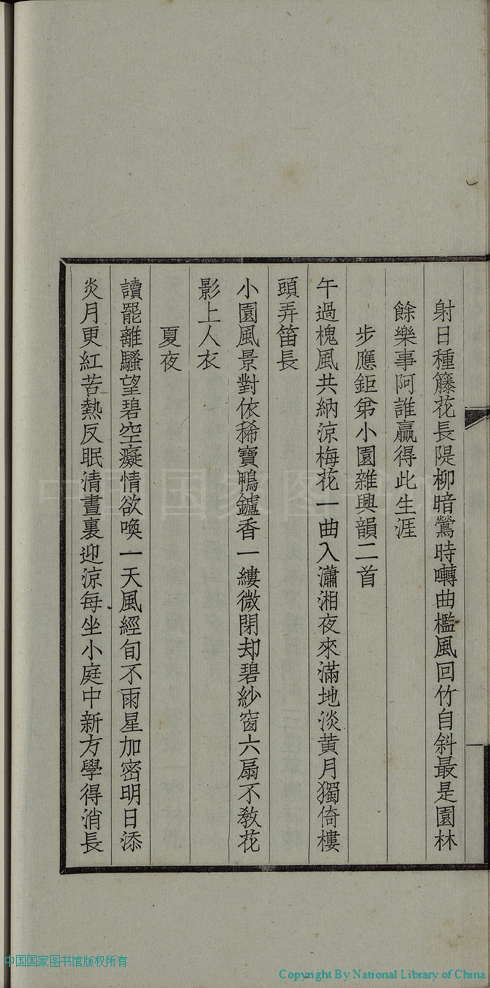 射日種籐花長隄柳暗鶯時囀曲檻風回竹自斜最是園林
餘樂事阿誰贏得此生涯
步應鉅弟小園雜興韻二首
午過槐風共納涼梅花一曲入瀟湘夜來滿地淡黃月獨倚樓
頭弄笛長
小園風景對依稀寶鴨鑪香一縷微閉却碧紗窗六扇不教花
影上人衣
夏夜
讀罷離騷望碧空癡情欲喚一天風經旬不雨星加密明日添
炎月更紅苦熱反眠清晝裏迎涼每坐小庭中新方學得消長
中国国家图书馆版权所有
Copyright By National Library of China